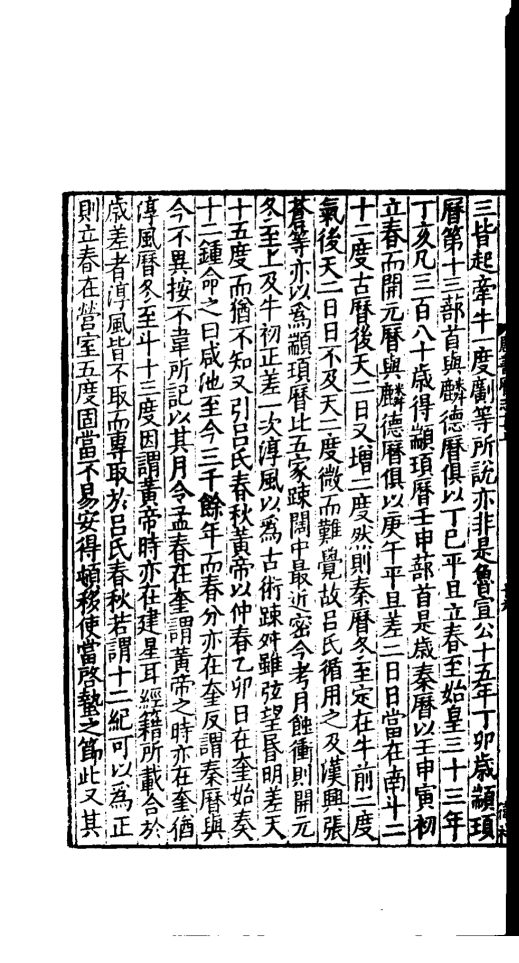 三皆起牽牛一度劇等所說亦非是魯宣公十五年丁卯歳顓頊
曆第十三蔀首與麟德曆俱以丁巳平旦立春至始皇三十三年
丁亥凡三百八十歳得顓頊曆壬申蔀首是歳秦曆以壬申寅初
立春而開元曆與麟德曆俱以庚午平旦差二日日當在南斗二
十二度古曆後天二日又增二度然則秦曆冬至定在牛前二度
氣後天二日日不及天二度微而難覺故吕氏循用之及漢興張
蒼等亦以爲顓頊曆比五家踈闊中最近密今考月蝕衝則開元
冬至上及牛初正差一次淳風以爲古術踈舛雖弦望昏明差天
十五度而猶不知又引吕氏春秋黃帝以仲春乙卯日在奎始奏
十二鍾命之曰咸池至今三千餘年而春分亦在奎反謂秦曆與
今不異按不韋所記以其月令孟春在奎謂黃帝之時亦在奎猶
淳風曆冬至斗十三度因謂黃帝時亦在建星耳經籍所載合於
歳差者淳風皆不取而專取於吕氏春秋若謂十二紀可以爲正
則立春在營室五度固當不易安得頓移使當啓蟄之節此又其